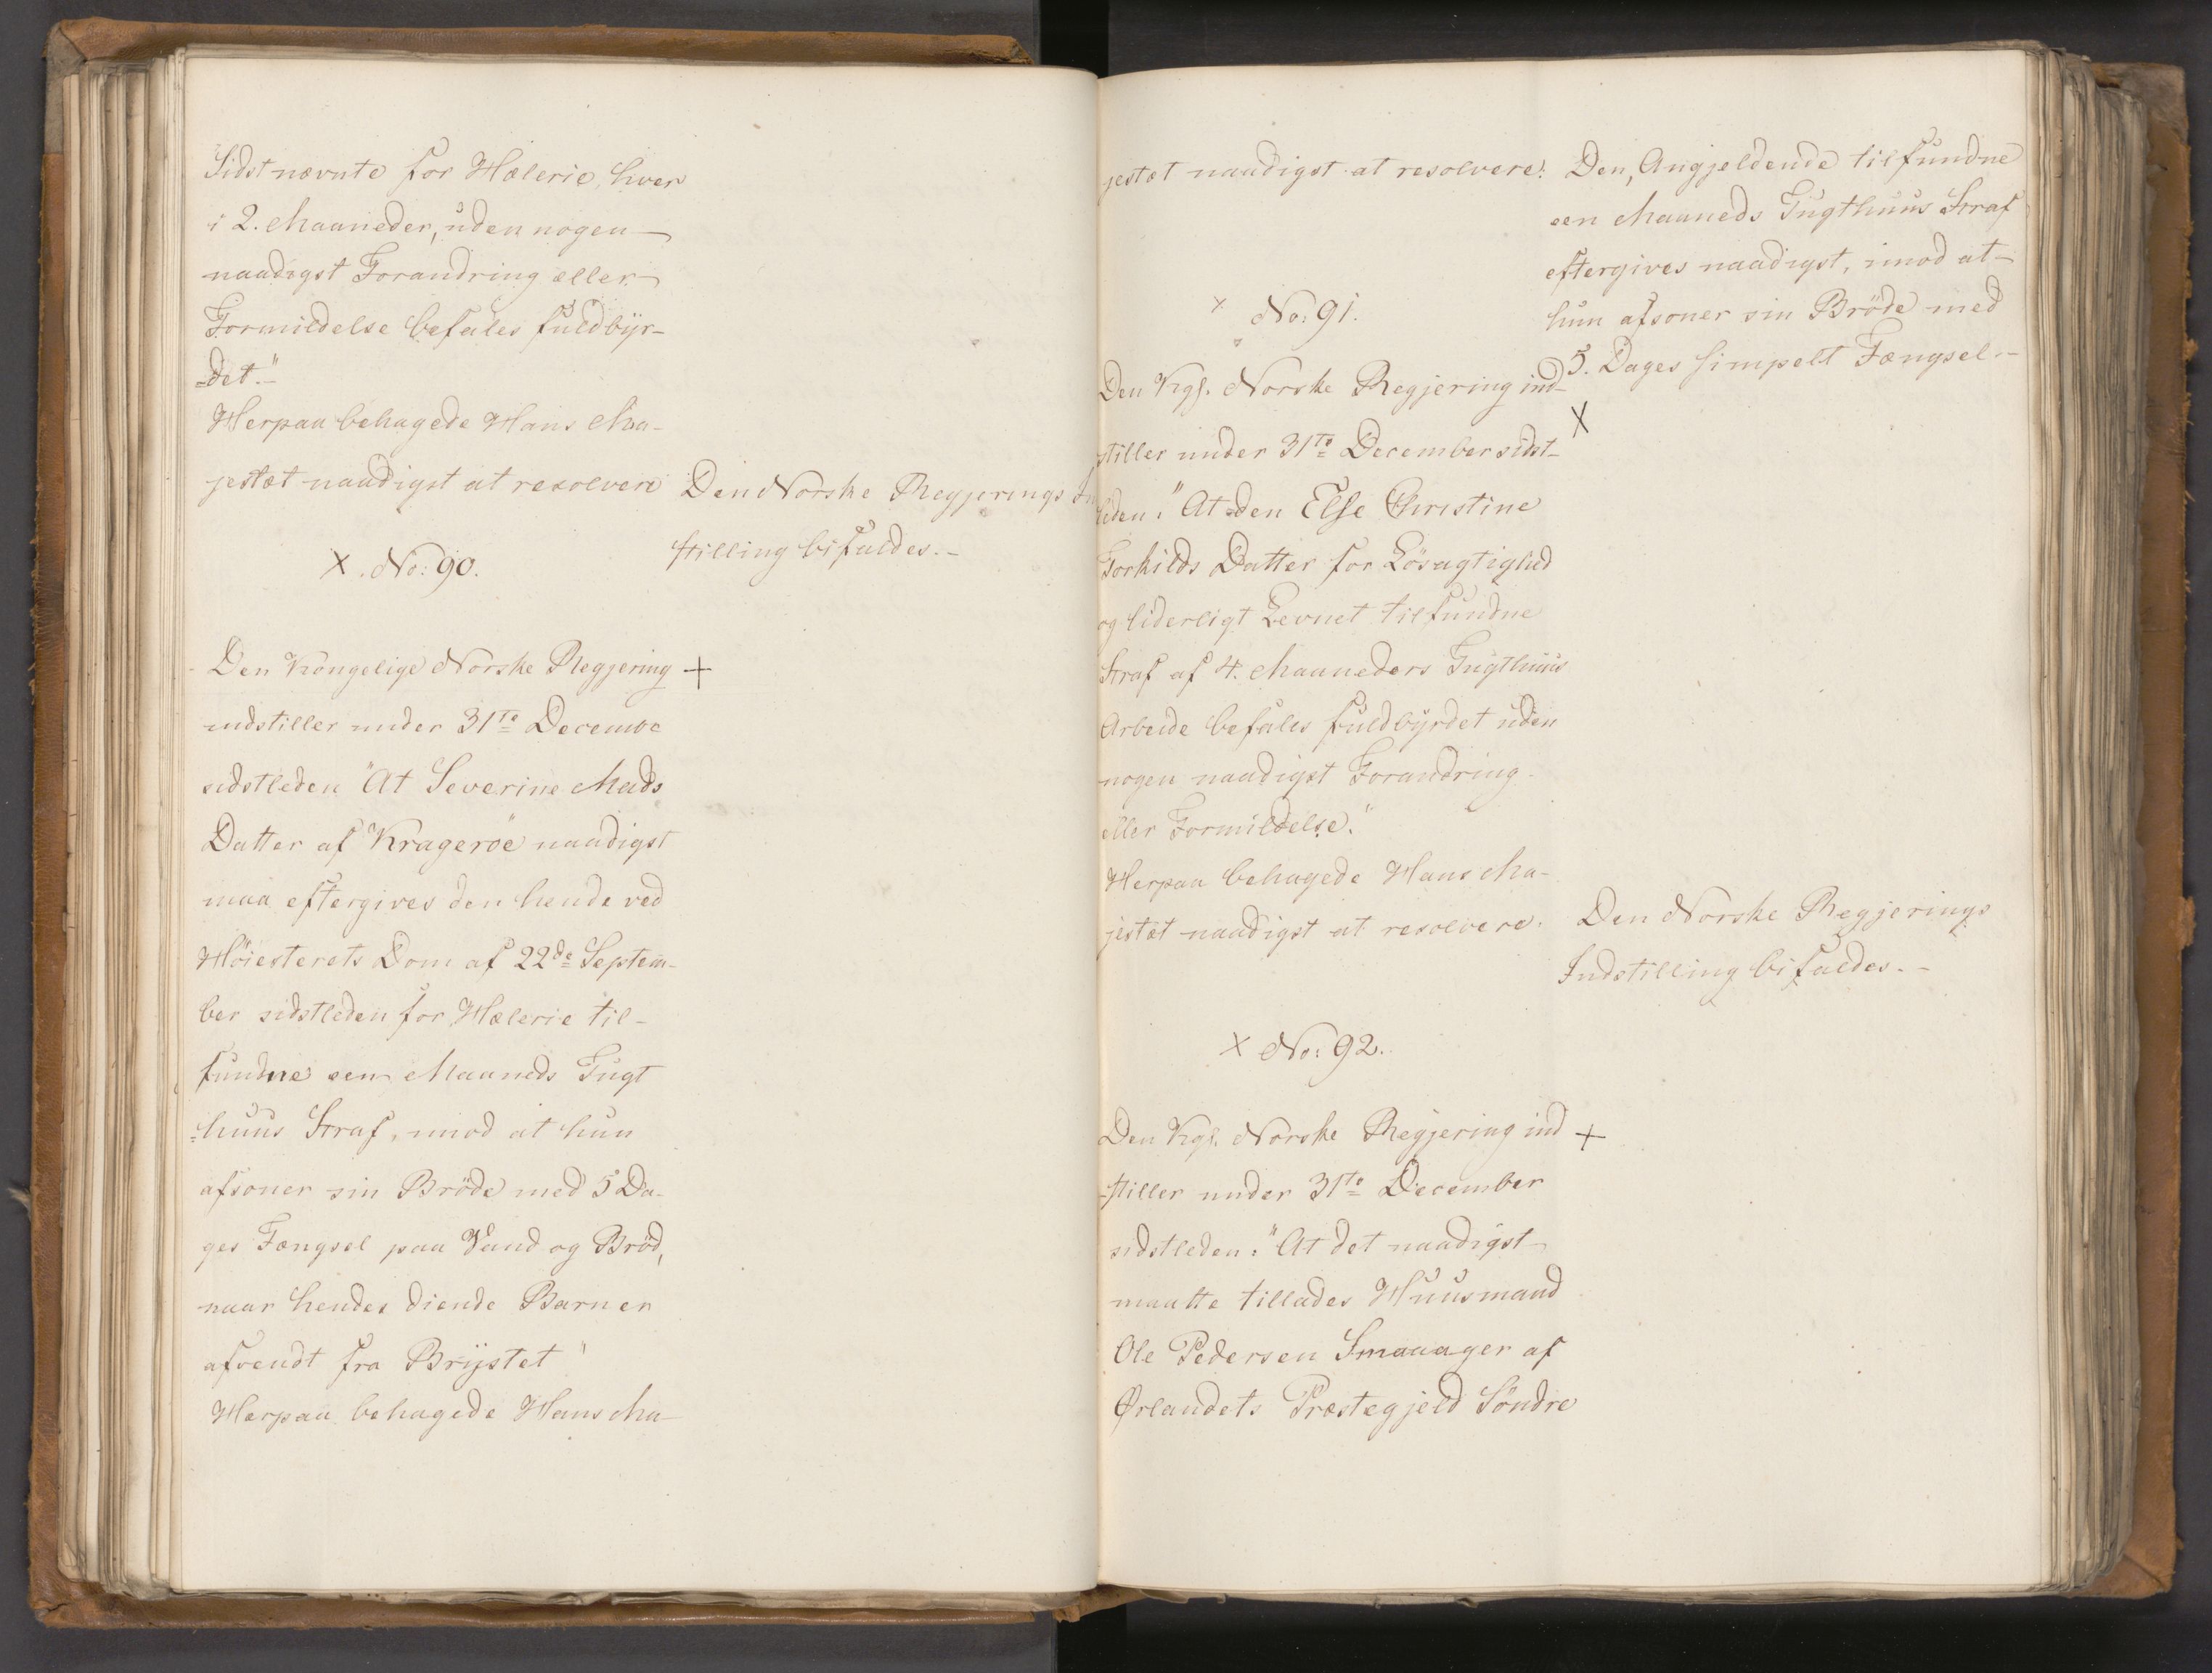 Sidstnævnte for Hæleric, hver
i 2. Maaneder, uden nogen
naadigst Forandring eller
Formildelse befales fuldbyr-
-det."
Herpaa behagede Hans Ma-
jestæt naadigst at resolvere
Den Norske Regjerings In
stilling bifaldes.-
X. No: 90.
Den Kongelige Norske Regjering +
indstiller under 31te Decembe
sidstleden "At Severine Mads
Datter af Krageröe naadigst
maa eftergives den hende ved
Höiesterets Dom af 22de Septem-
ber sidstleden for Hælerie til-
fundne een Maaneds Tugt
-huus Straf, imod at hun
afsoner sin Bröde med 5 Da-
ges Fængsel paa Vand og Bröd,
naar hendes diende Barn er
afvendt fra Brystet"
Herpaa behagede Hans Ma-
jestæt naadigst at resolvere:
Den, Angjeldende tilfundne
een Maaneds Tugthuus Straf
eftergives naadigst, imod at
hun afsoner sin Bröde med
5. Dages simpelt Fængsel.-
x No: 91.
Den Kgl. Norske Regjering ind- X
stiller under 31te December sidst-
leden: "At den Else Christine
Torkilds Datter for Lösagtighed
og liderligt Levnet tilfundne
Straf af 4. Maaneders Tugthuus
Arbeide befales fuldbyrdet uden
nogen naadigst Forandring
eller Formildelse."
Herpaa behagede Hans Ma-
jestæt naadigst at resolvere.
Den Norske Regjerings
Indstilling bifaldes.-
X No: 92.
Den Kgl. Norske Regjering ind +
-stiller under 31te December
sidstleden: "At det naadigst
maatte tillades Huusmand
Ole Pedersen Smaaager af
Ørlandets Præstegjeld Söndre